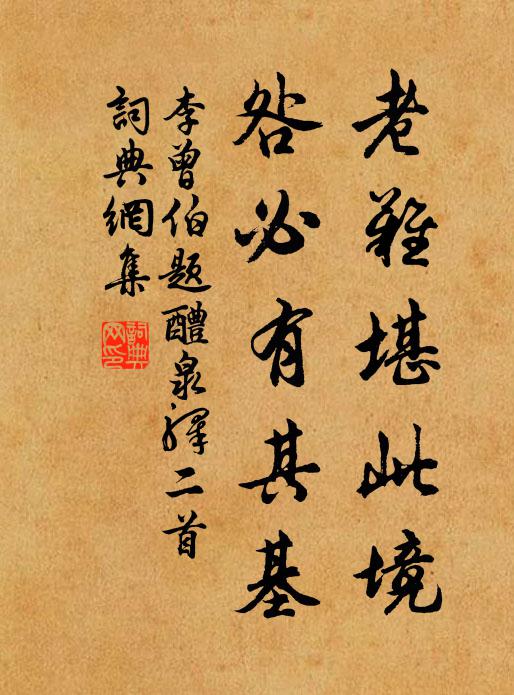 老難堪此境
咎必有其基
李曾伯題醴泉驛二首
詞典網集
詞典網印